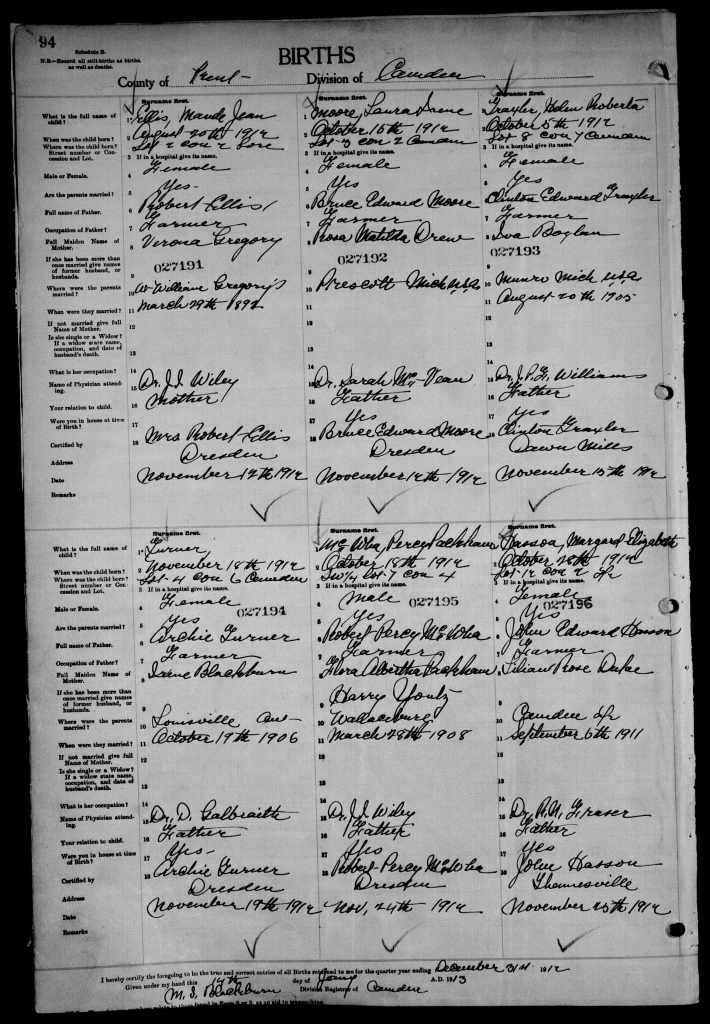 94
Schedule B.
N.B.—Record all still-births as births, as well as deaths.
BIRTHS
County of Kent Division of Camden
Surname first. Surname first. Surname first.
What is the full name of child? 1 Ellis, Maude Jean 1 Moore, Laura Irene Traxler, Helen Roberta
When was the child born? 2 August 20th 1912 2 October 15th 1912 2 October 5th 1912
Where was the child born? Street number or Concession and Lot. Lot 2 Con 2 Gore Lot 3 Con 2 Camden Lot 8 Con 7 Camden
3 If in a hospital give its name. 3 If in a hospital give its name. 3 If in a hospital give its name.
Male or Female. 4 Female 4 Female 4 Female
Are the parents married? 5 Yes 5 Yes 5 Yes
Full name of Father. 6 Robert Ellis 6 Bruce Edward Moore 6 Clinton Edward Traxler
Occupation of Father? 7 Farmer 7 Farmer 7 Farmer
Full Maiden Name of Mother. 8 Verona Gregory 8 Rosa Matilda Drew 8 Iva Boylan
If she has been more than once married give names of former husband, or husbands. 9 027191 9 027192 9 027193
Where were the parents married? 10 W William Gregory's 10 Prescott Mich U.S.A 10 Munro Mich U.S.A
When were they married? 11 March 29th 11 11 August 20th 1905
If not married give full Name of Mother. 12 12 12
Is she single or a Widow? If a widow state name, occupation, and date of husband's death. 13 13 13
What is her occupation? 14 14 14
Name of Physician attending. 15 Dr. J.J. Wiley 15 Dr. Sarah McVean 15 Dr. J.P.G. Williams
Your relation to child. 16 Mother 16 Father 16 Father
Were you in house at time of Birth? 17 17 Yes 17 Yes
Certified by 18 Mrs Robert Ellis 18 Bruce Edward Moore 18 Clinton Traxler
Address Dresden Dresden Dawn Mills
Date November 12th 1912 November 14th 1912 November 15th 1912
Remarks
Surname first. Surname first. Surname first.
What is the full name of child? 1 Turner 1 McWha, Percy Packham 1 Hasson, Margaret Elizabeth
When was the child born? 2 November 18th 1912 2 October 18th 1912 2 October 28th 1912
Where was the child born? Street number or Concession and Lot. Lot 4 Con 6 Camden SW¼ Lot 7 Con 4 Lot 12 Con 2
3 If in a hospital give its name. 3 If in a hospital give its name. 3 If in a hospital give its name.
Male or Female. 4 Female 4 Male 4 Female
027194 027195 027196
Are the parents married? 5 Yes 5 Yes 5 Yes
Full name of Father. 6 Archie Turner 6 Robert Percy McWha 6 John Edward Hasson
Occupation of Father? 7 Farmer 7 Farmer 7 Farmer
Full Maiden Name of Mother. 8 Blackburn 8 Flora Albertha Packham 8 Lilian Rose Duke
If she has been more than once married give names of former husband, or husbands. 9 9 Harry Yontz 9
Where were the parents married? 10 Louisville Ont 10 Wallaceburg 10 Camden
When were they married? 11 October 19th 1906 11 March 28th 1908 11 September 6th 1911
If not married give full Name of Mother. 12 12 12
Is she single or a Widow? If a widow state name, occupation, and date of husband's death. 13 13 13
What is her occupation? 14 14 14
Name of Physician attending. 15 Dr. D. Galbraith 15 Dr. J.J. Wiley 15 Dr. R.N. Fraser
Your relation to child. 16 Father 16 Father 16 Father
Were you in house at time of Birth? 17 Yes 17 Yes 17 Yes
Certified by 18 Archie Turner 18 Robert Percy McWha 18 John Hasson
Address Dresden Dresden Thamesville
Date November 19th 1912 Nov, 24th 1912 November 25th 1912
Remarks
I hereby certify the foregoing to be the true and correct entries of all Births returned to me for the quarter year ending December 31st 1912
Given under my hand this 14th day of Jany A.D. 1913
M. S. Blackburn Division Registrar of Camden